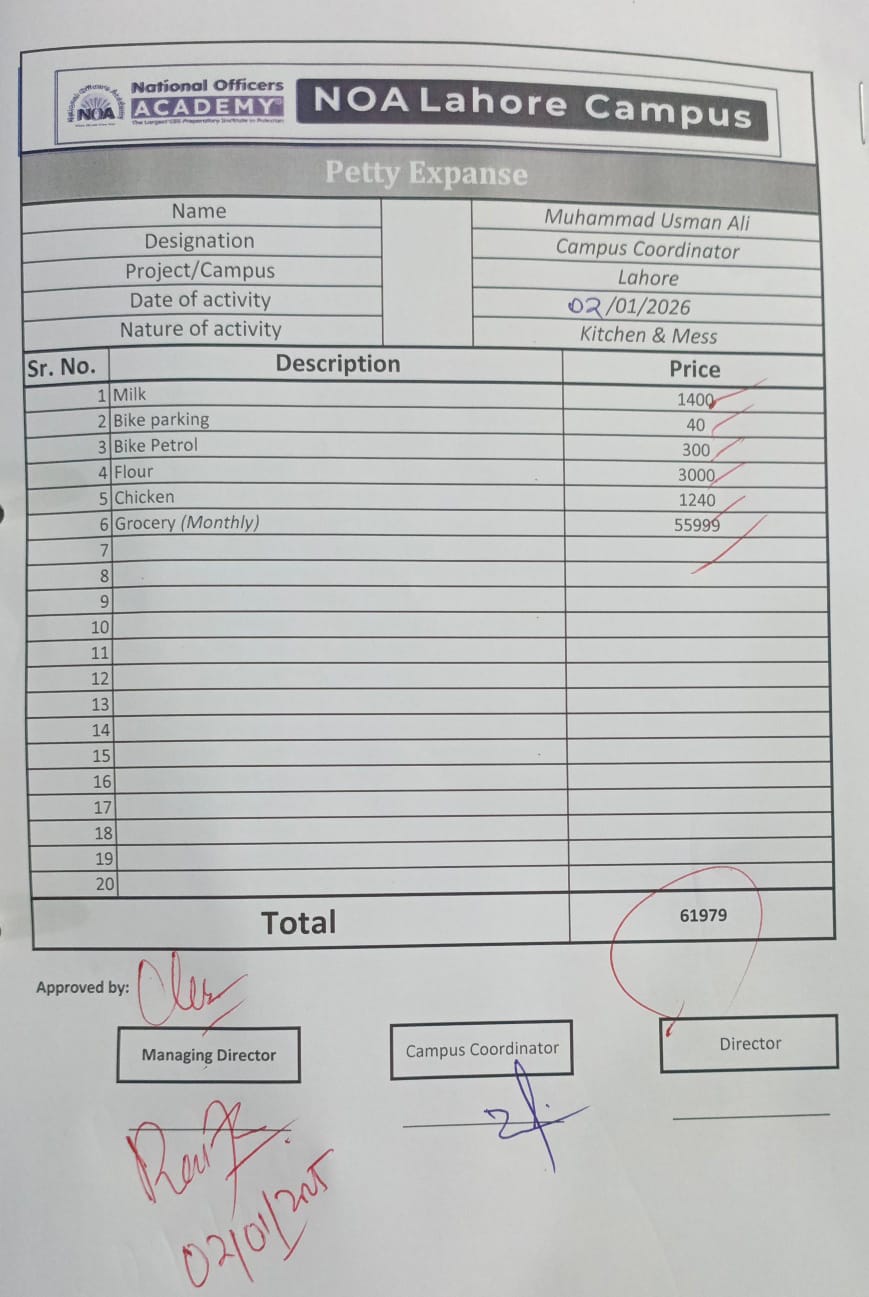 National Officers
ACADEMY
The Largest CSS Preparatory Institute in Pakistan
NOA
NOA Lahore Campus
Petty Expanse
Name Muhammad Usman Ali
Designation Campus Coordinator
Project/Campus Lahore
Date of activity 02/01/2026
Nature of activity Kitchen & Mess
Sr. No. Description Price
1 Milk 1400
2 Bike parking 40
3 Bike Petrol 300
4 Flour 3000
5 Chicken 1240
6 Grocery (Monthly) 55999
7
8
9
10
11
12
13
14
15
16
17
18
19
20
Total 61979
Approved by:
Managing Director Campus Coordinator Director
02/01/2025